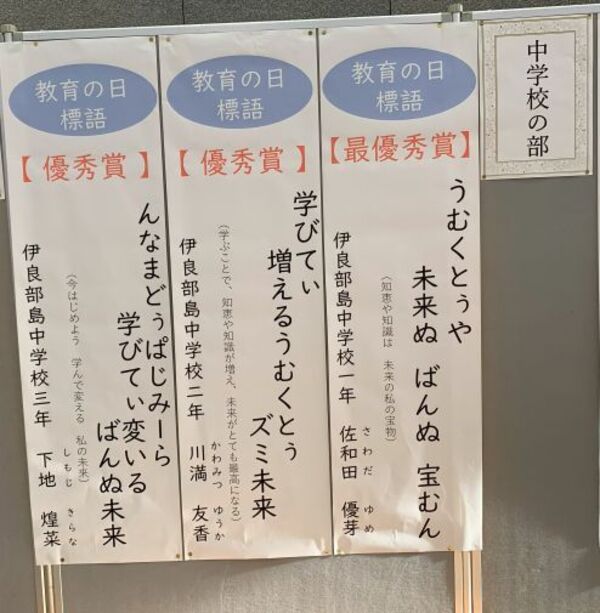 中学校の部
教育の日
標語
【最優秀賞】
うむくとぅや
未来ぬ ばんぬ 宝むん
(知恵や知識は 未来の私の宝物)
伊良部島中学校一年 佐和田 優芽
さわだ ゆめ
教育の日
標語
【優秀賞】
学びてぃ
増えるうむくとぅ
ズミ未来
(学ぶことで、知恵や知識が増え、未来がとても最高になる)
伊良部島中学校二年 川満 友香
かわみつ ゆうか
教育の日
標語
【優秀賞】
んなまどぅぱじみーら
学びてぃ変いる
ばんぬ未来
(今はじめよう 学んで変える 私の未来)
伊良部島中学校三年 下地 煌菜
しもじ きらな